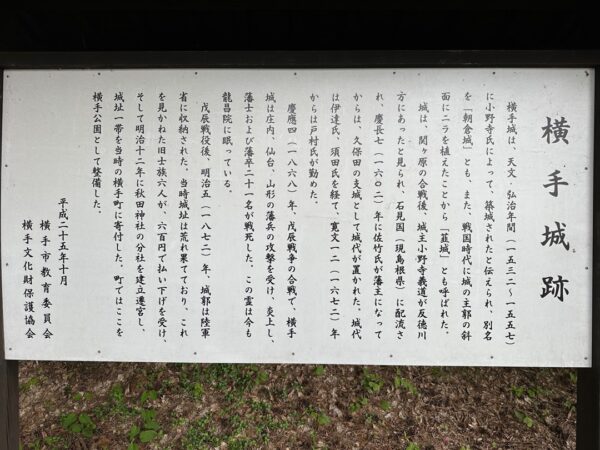 横手城跡
横手城は、天文、弘治年間（一五三二〜一五五七）
に小野寺氏によって、築城されたと伝えられ、別名
を「朝倉城」とも、また、戦国時代に城の主郭の斜
面にニラを植えたことから「韮城」とも呼ばれた。
城は、関ヶ原の合戦後、城主小野寺義道が反徳川
方にあったと見られ、石見国（現島根県）に配流さ
れ、慶長七（一六〇二）年に佐竹氏が藩主になって
からは、久保田の支城として城代が置かれた。城代
は伊達氏、須田氏を経て、寛文一二（一六七二）年
からは戸村氏が勤めた。
慶應四（一八六八）年、戊辰戦争の合戦で、横手
城は庄内、仙台、山形の藩兵の攻撃を受け、炎上し、
藩士および藩卒二十一名が戦死した。この霊は今も
龍昌院に眠っている。
戊辰戦役後、明治五（一八七二）年、城郭は陸軍
省に収納された。当時城址は荒れ果てており、これ
を見かねた旧士族六人が、六百円で払い下げを受け、
そして明治十二年に秋田神社の分社を建立遷宮し、
城址一帯を当時の横手町に寄付した。町ではここを
横手公園として整備した。
平成二十五年十月
横手市教育委員会
横手文化財保護協会